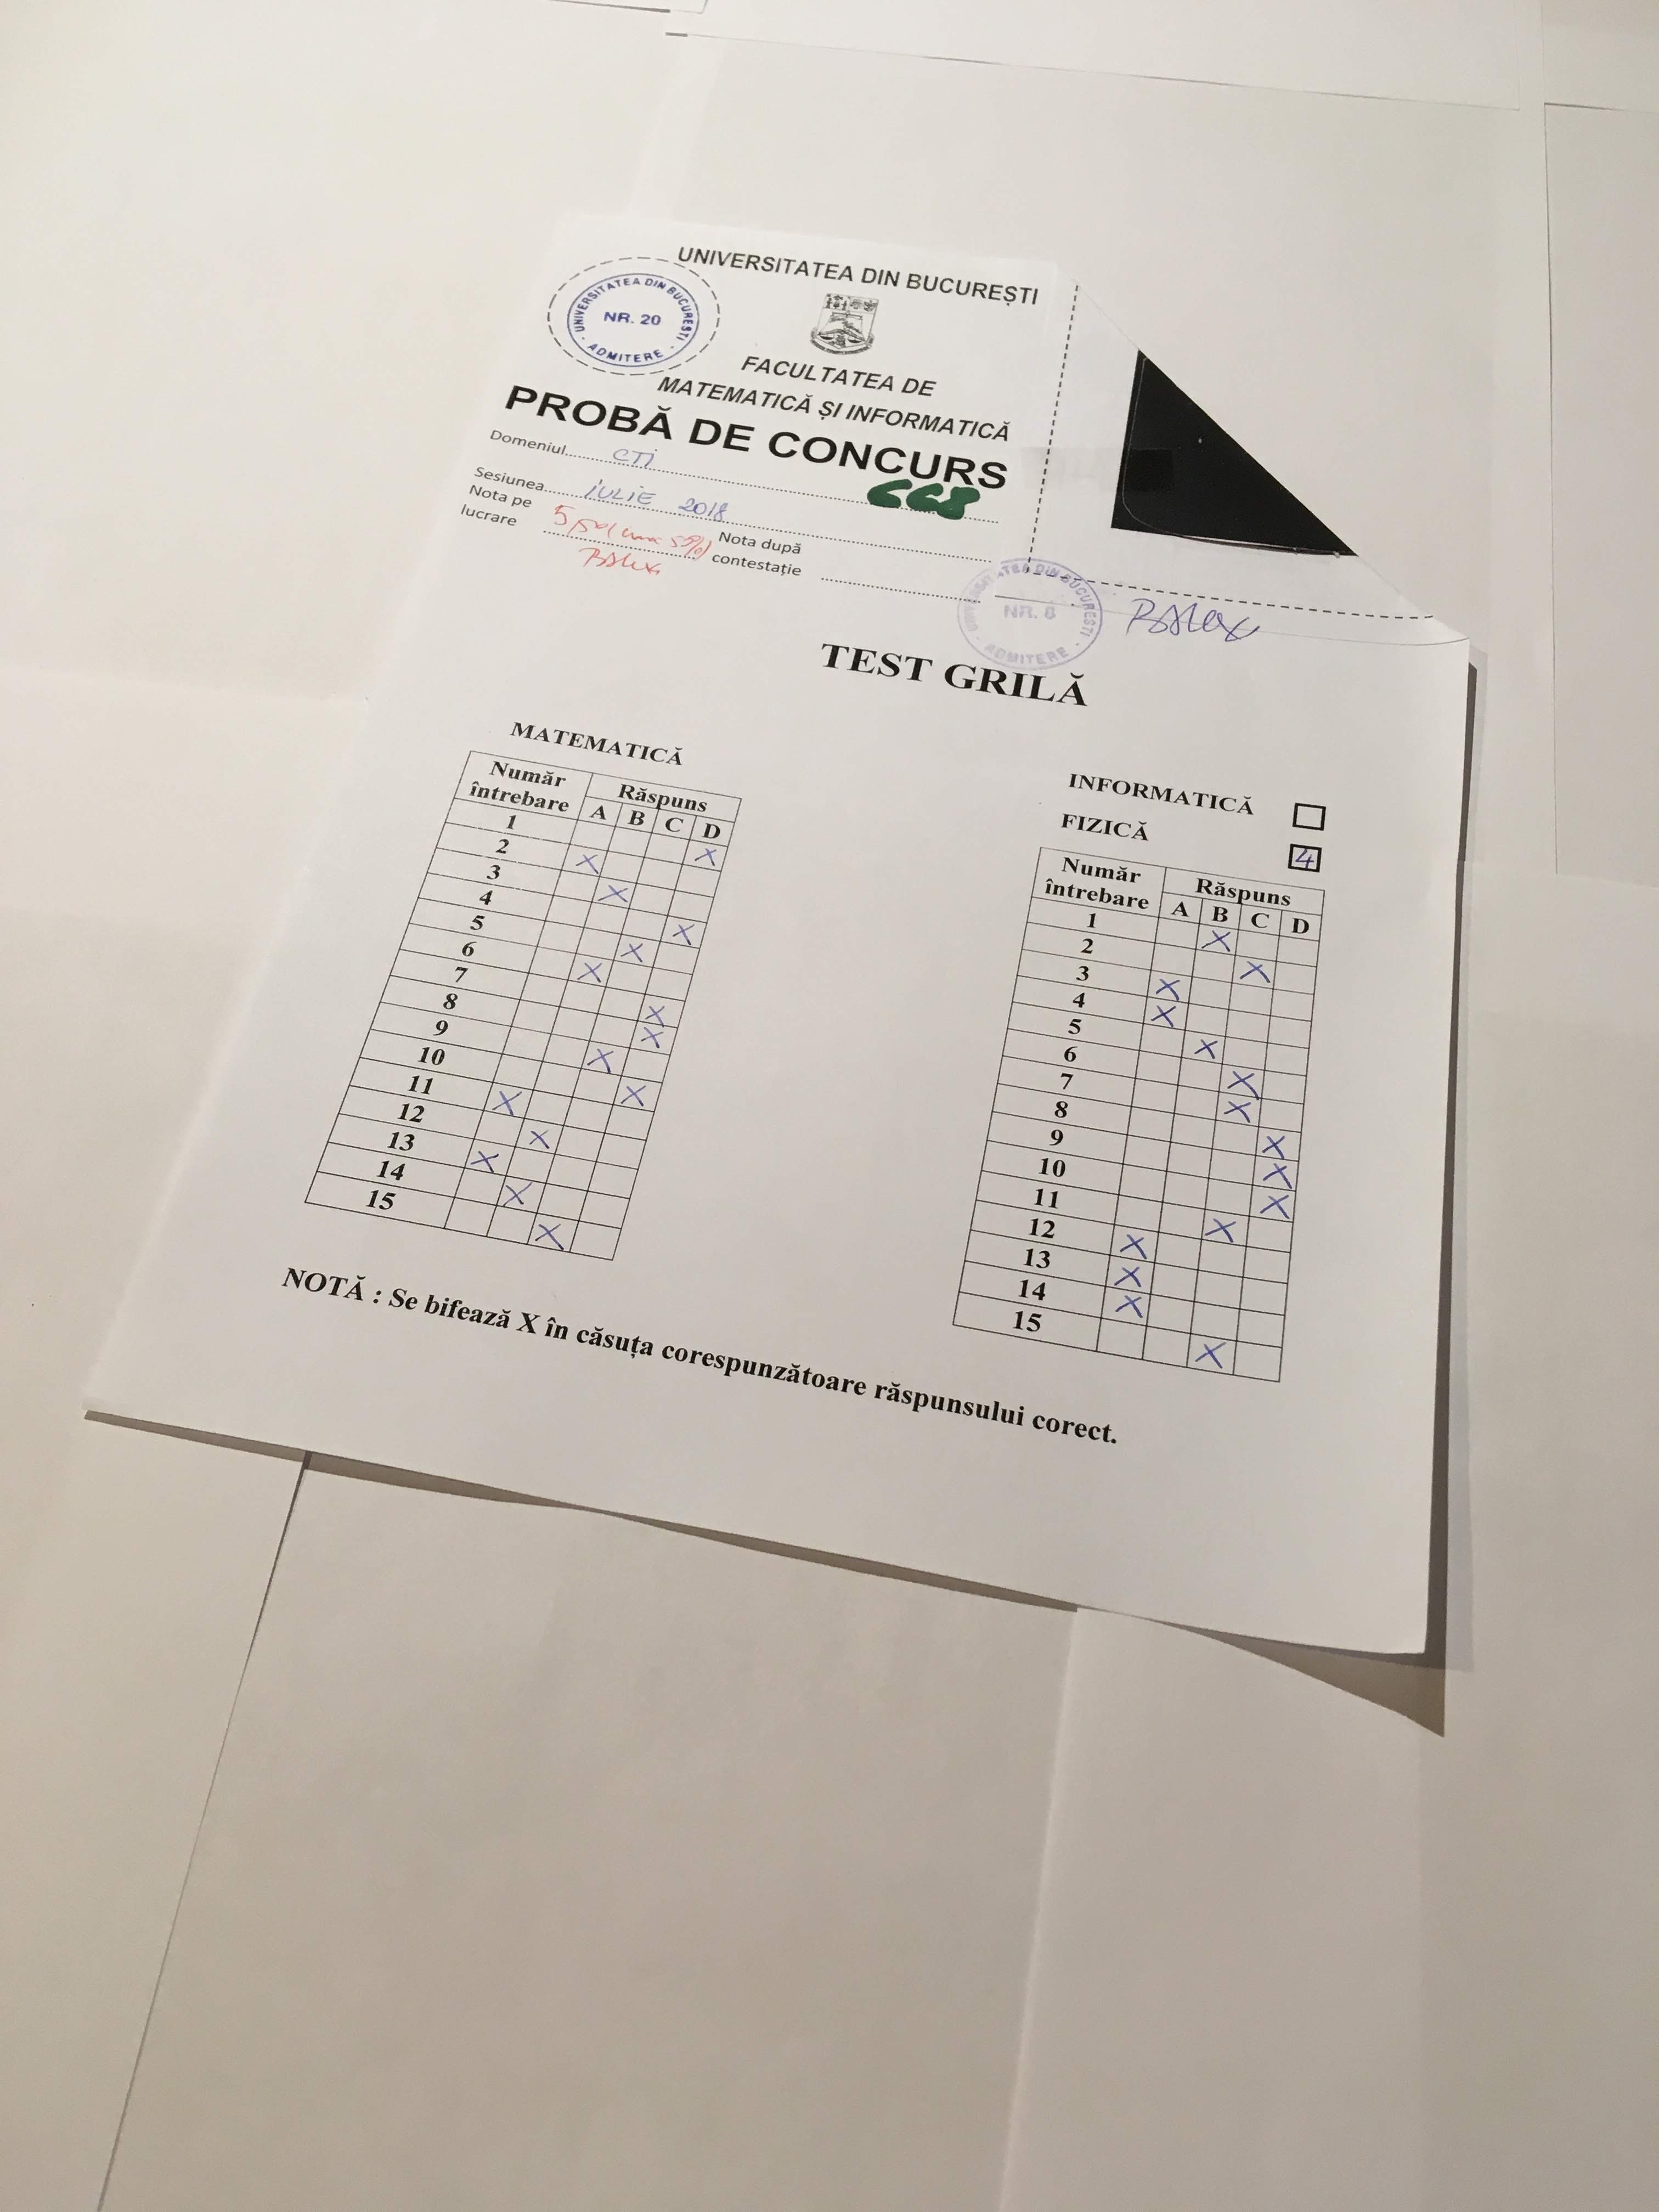 UNIVERSITATEA DIN BUCUREȘTI
UNIVERSITATEA DIN BUCURESTI
NR. 20
ADMITERE
FACULTATEA DE
MATEMATICĂ ȘI INFORMATICĂ
PROBĂ DE CONCURS
Domeniul CTI
668
Sesiunea IULIE 2018
Nota pe lucrare 5,50
Nota după contestație
UNIVERSITATEA DIN BUCURESTI
NR. 8
ADMITERE
TEST GRILĂ
MATEMATICĂ
Număr întrebare Răspuns
A B C D
1 X
2 X
3 X
4 X
5 X
6 X
7 X
8 X
9 X
10 X
11 X
12 X
13 X
14 X
15 X
INFORMATICĂ
FIZICĂ 4
Număr întrebare Răspuns
A B C D
1 X
2 X
3 X
4 X
5 X
6 X
7 X
8 X
9 X
10 X
11 X
12 X
13 X
14 X
15 X
NOTĂ : Se bifează X în căsuța corespunzătoare răspunsului corect.